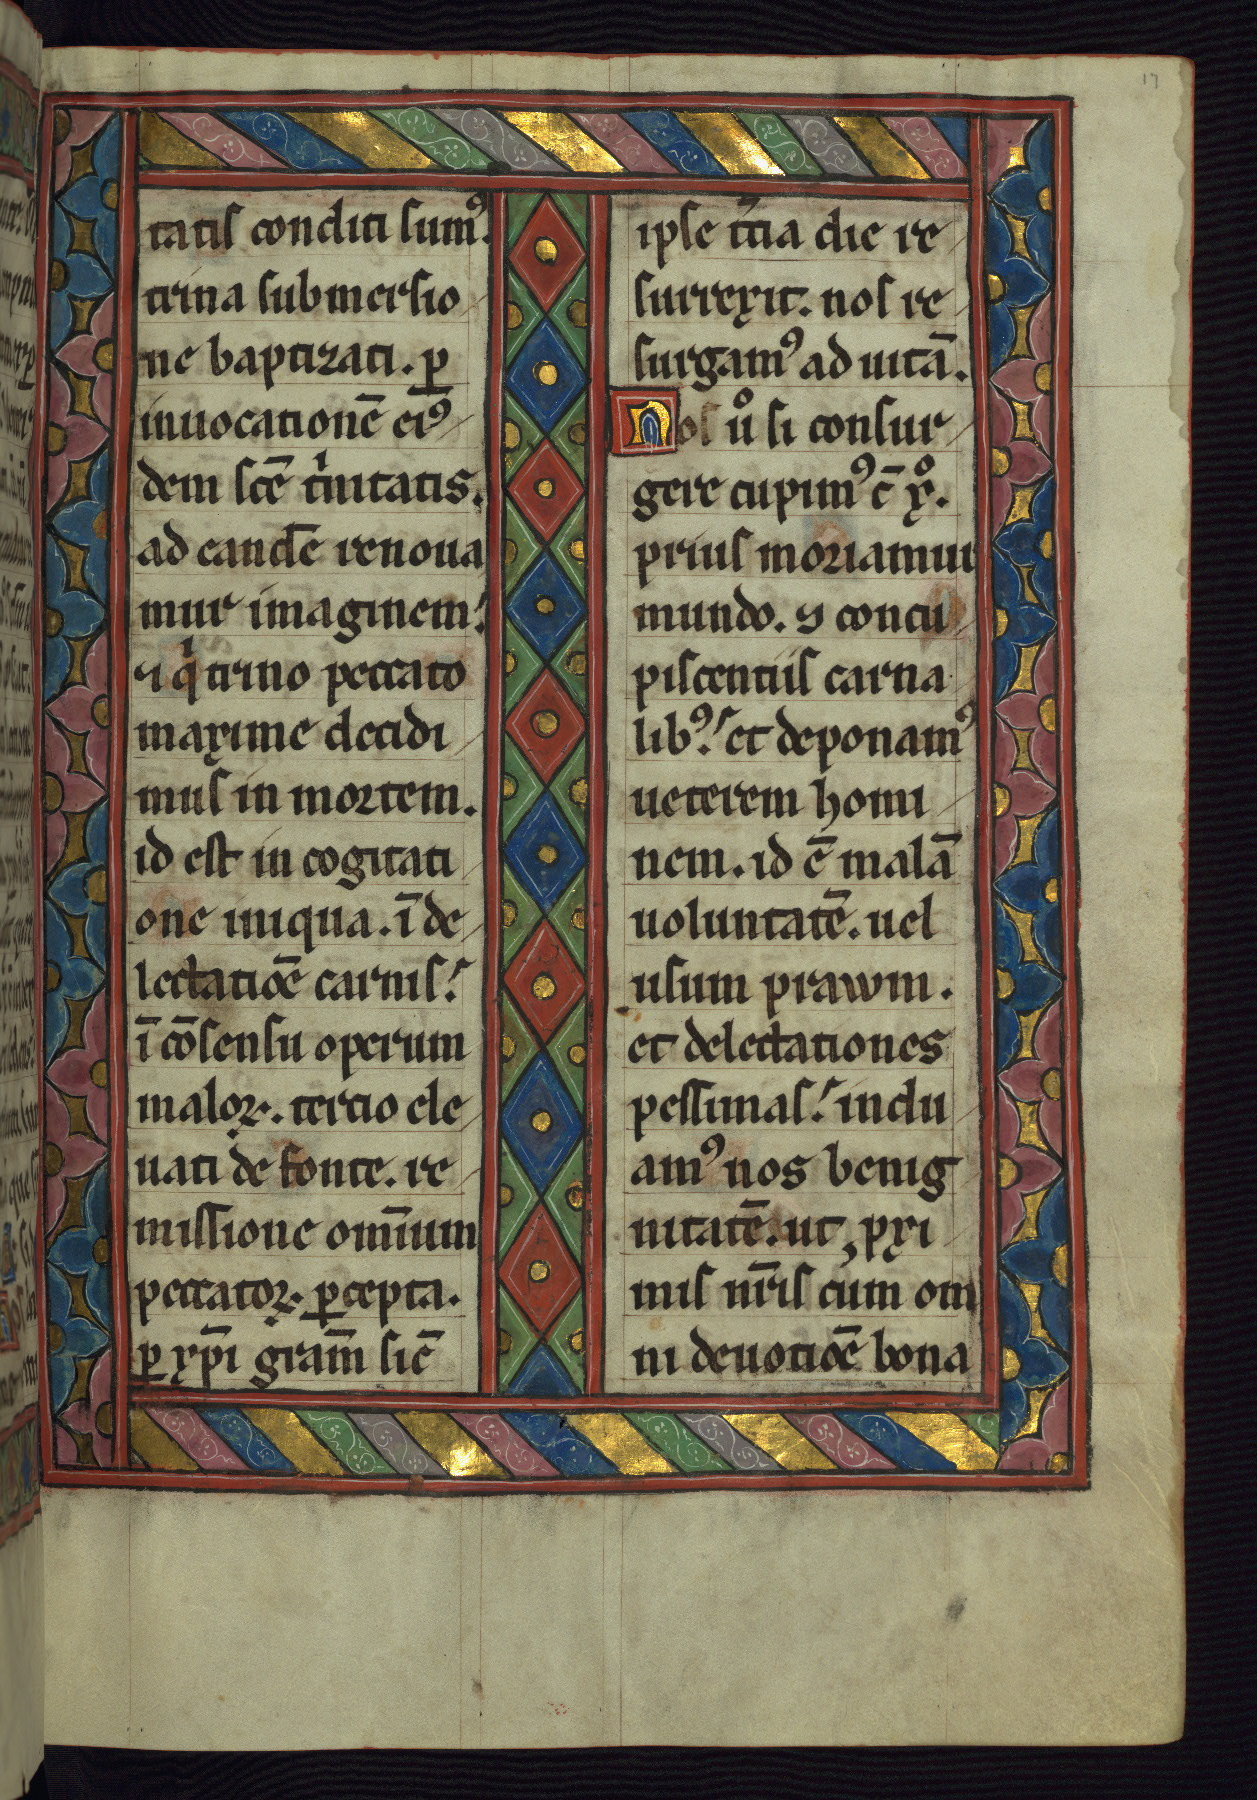 17
tatis conditi sumꝰ.
trina submersio
ne baptizati. ꝑ
inuocationē eiꝰ
dem scē tͥnitatis.
ad eandē renoua
mur imaginem.
⁊ qͥ trino peccato
maxime decidi
mus in mortem.
id est in cogitati
one iniqua. ī de
lectatiōe carnis.
ī cōsensu operum
maloꝝ. tercio ele
uati de fonte. re
missione omīum
peccatoꝝ. ꝑcepta.
ꝑ xp̄i gram̄ sic̄
ipse tͨcia die re
surrexit. nos re
surgamꝰ ad uitā.
Nos uͦ si consur
gere cupimꝰ c̄ xͦ.
prius moriamur
mundo. ⁊ concu
piscentiis carna
libꝰ. et deponamꝰ
ueterem homi
nem. id ē malā
uoluntatē. uel
usum prauum.
et delectationes
pessimas. indu
amꝰ nos benig
nitatē. ut ꝓxi
mis nr̄is cum om
ni deuotiōe bona